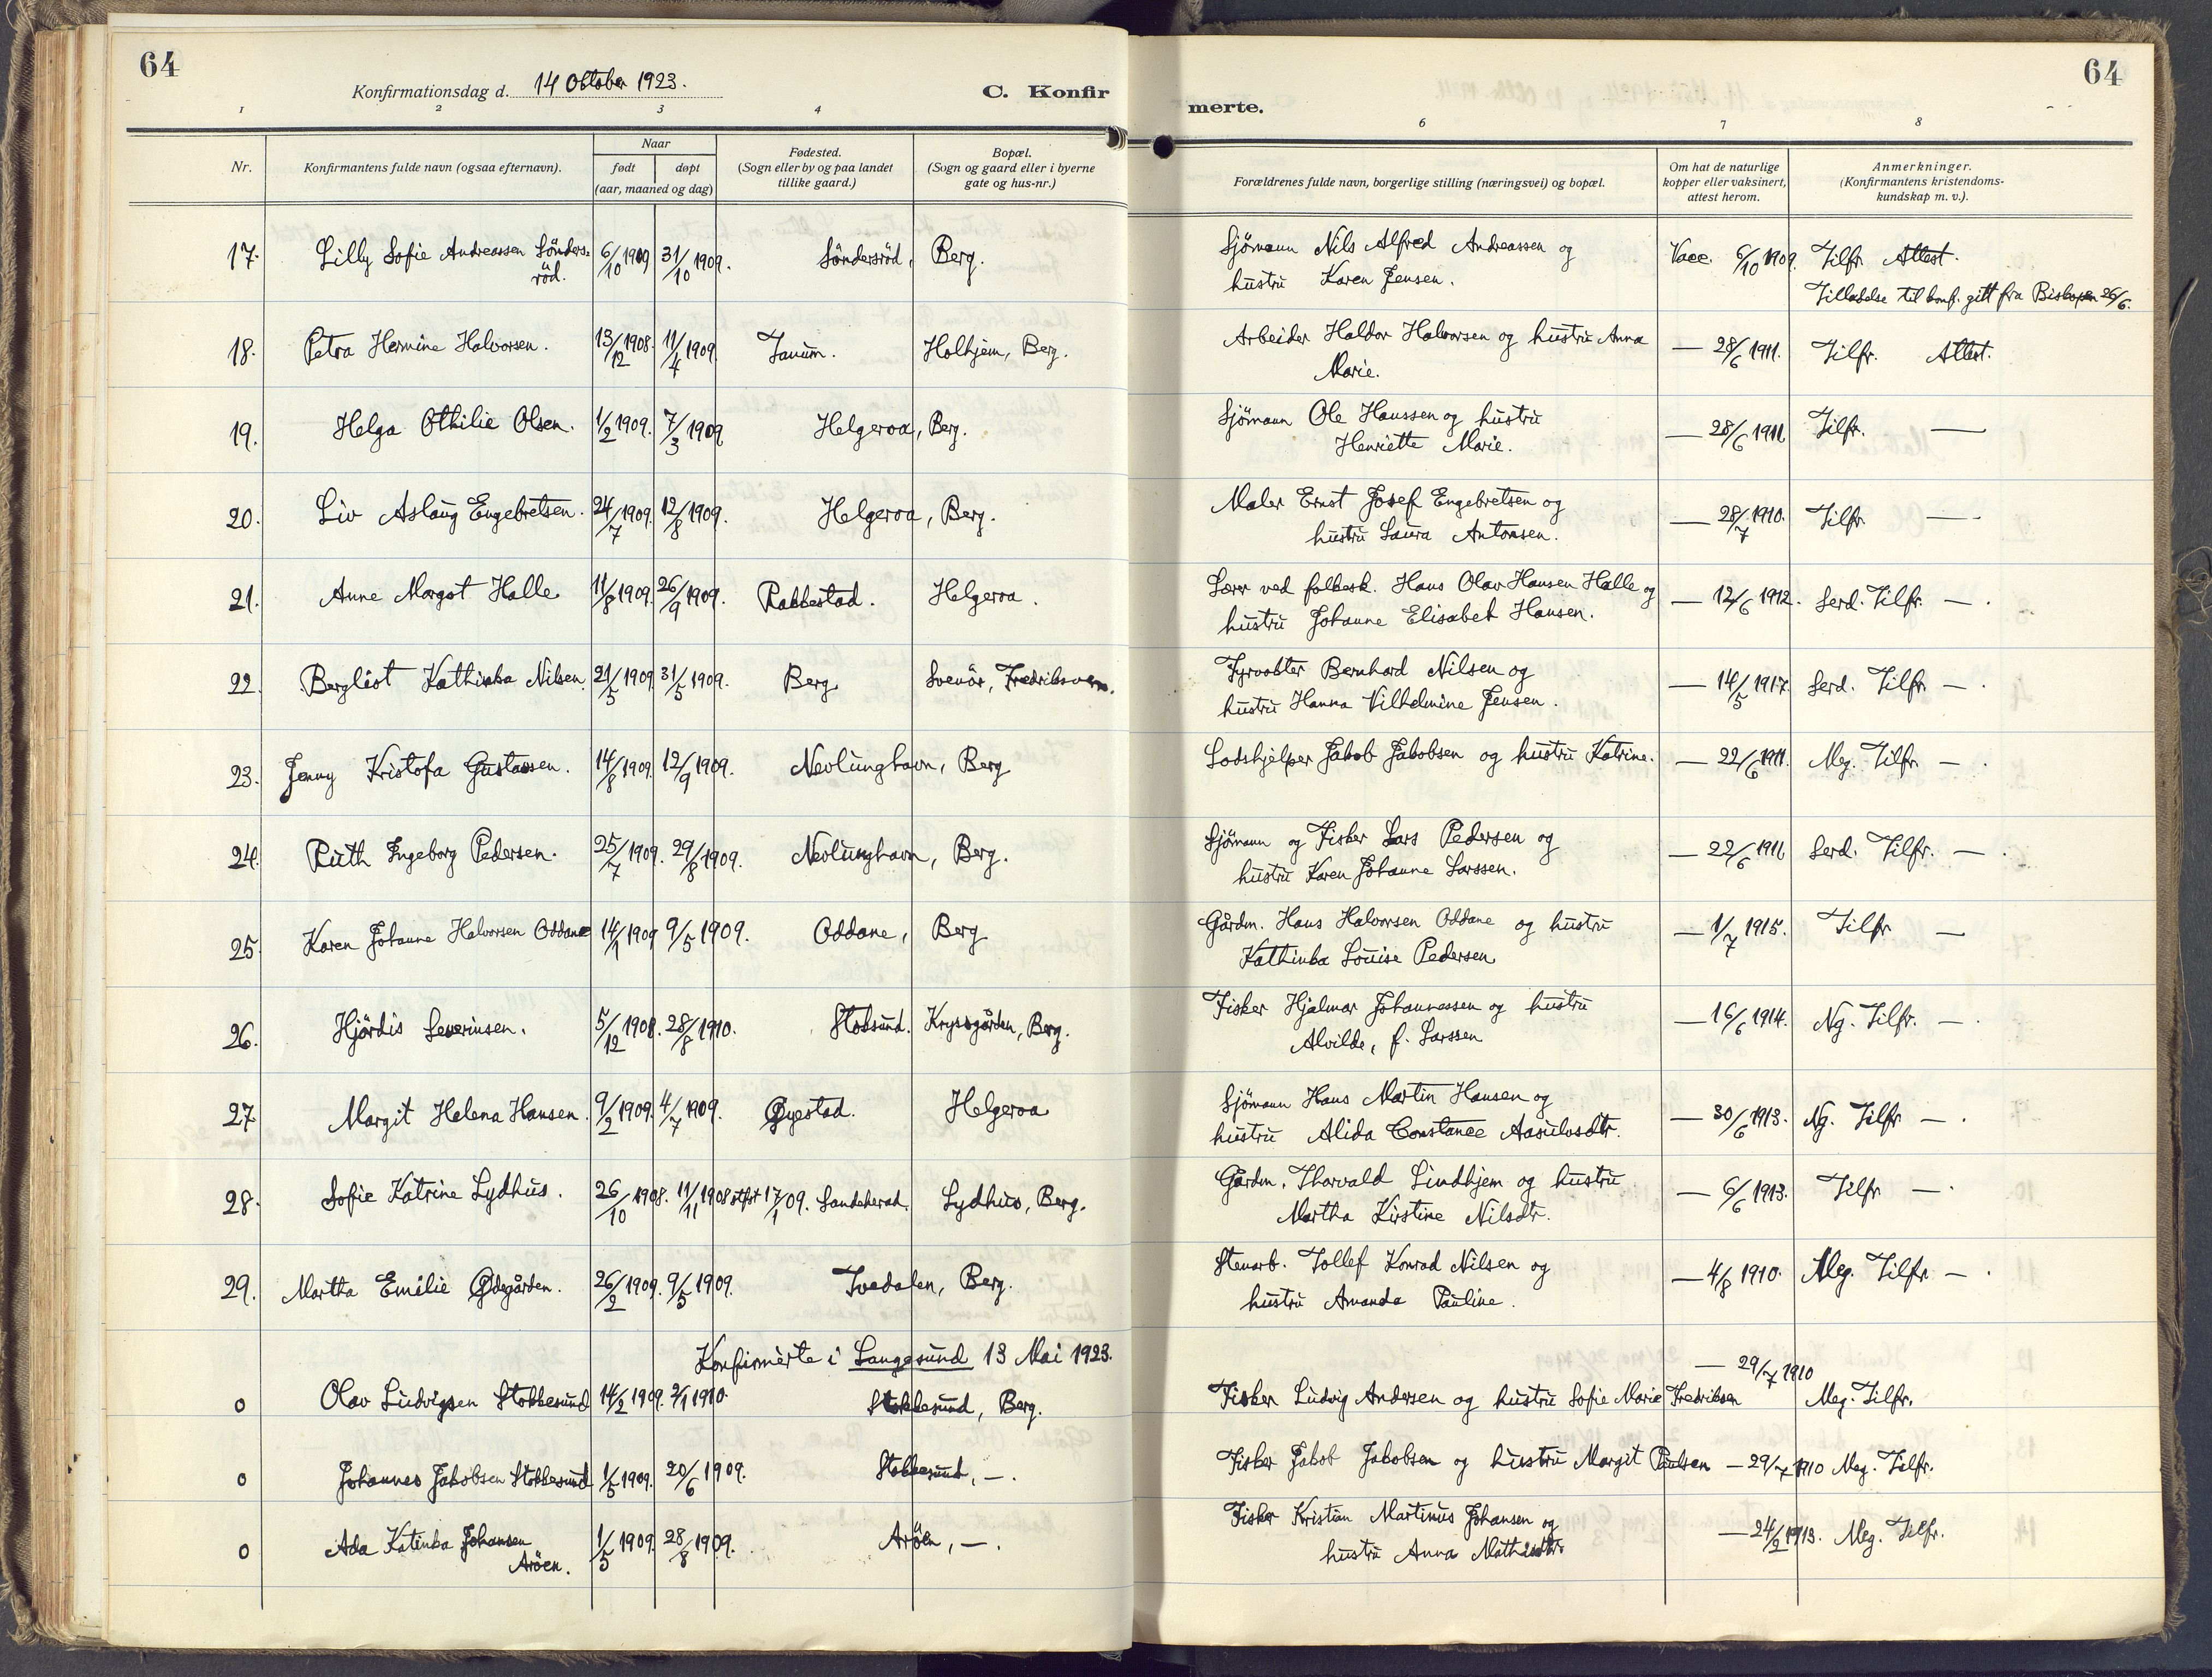 64
Konfirmationsdag d. 14 Oktober 1923.
C. Konfirmerte.
64
1 2 3 4 6 7 8
Nr. Konfirmantens fulde navn (ogsaa efternavn). Naar født døpt (aar, maaned og dag) Fødested. (Sogn eller by og paa landet tillike gaard.) Bopæl. (Sogn og gaard eller i byerne gate og hus-nr.) Forældrenes fulde navn, borgerlige stilling (næringsvei) og bopæl. Om hat de naturlige kopper eller vaksinert, attest herom. Anmerkninger. (Konfirmantens kristendomskundskap m. v.).
17. Lilly Sofie Andreassen Söndersröd. 6/10 1909 31/10 1909. Söndersröd, Berg. Sjömann Nils Alfred Andreassen og hustru Karen Jensen. Vacc. 6/10 1909. Tilfr. Attest. Tilladelse til konf. gitt fra Biskopen 26/6.
18. Petra Hermine Halvorsen. 13/12 1908. 11/4 1909. Tanum. Holhjem, Berg. Arbeider Haldor Halvorsen og hustru Anna Marie. — 28/6 1911. Tilfr. Attest.
19. Helga Othilie Olsen. 1/2 1909. 7/3 1909 Helgeroa, Berg. Sjömann Ole Hanssen og hustru Henriette Marie. — 28/6 1911 Tilfr. —
20. Liv Aslaug Engebretsen. 24/7 1909. 12/8 1909. Helgeroa, Berg. Maler Ernst Josef Engebretsen og hustru Laura Antonsen. — 28/7 1910. Tilfr. —
21. Anne Margot Halle 11/8 1909. 26/9 1909. Rakkestad. Helgeroa. Lærer ved folkesk. Hans Olav Hansen Halle og hustru Johanne Elisabet Hansen. — 12/6 1912. Serd. Tilfr. — .
22. Bergliot Kathinka Nilsen. 21/5 1909 31/5 1909. Berg Svenör, Fredriksvern. Fyrvokter Bernhard Nilsen og hustru Hanna Vilhelmine Jensen. — 14/5 1917. Serd. Tilfr. — .
23. Jenny Kristofa Gustavsen. 14/8 1909. 12/9 1909. Nevlunghavn, Berg Lodshjelper Jakob Jakobsen og hustru Katrine. — 22/6 1911. Meg. Tilfr. — .
24. Ruth Ingeborg Pedersen. 25/7 1909. 29/8 1909. Nevlunghavn, Berg. Sjömann og Fisker Lars Pedersen og hustru Karen Johanne Larssen. — 22/6 1911 Serd. Tilfr. — .
25. Karen Johanne Halvorsen Oddane 14/1 1909 9/5 1909. Oddane, Berg Gårdm. Hans Halvorsen Oddane og hustru Kathinka Louise Pedersen — 1/7 1915. Tilfr —
26. Hjördis Severinsen. 5/12 1908. 28/8 1910. Stoksund. Kryssgården, Berg. Fisker Hjalmar Johannessen og hustru Alvilde, f. Larssen — 16/6 1914. Ng. Tilfr. — .
27 Margit Helena Hansen. 9/2 1909. 4/7 1909. Øyestad. Helgeroa Sjömann Hans Martin Hansen og hustru Alida Constance Aasulvsdtr. — 30/6 1913. Ng. Tilfr — .
28. Sofie Katrine Lydhus. 26/10 1908. 11/11 1908 stfst 17/1 09. Sandeherad. Lydhus, Berg. Gårdm. Thorvald Lindhjem og hustru Martha Kirstine Nilsdtr. — 6/6 1913. Tilfr — .
29. Martha Emilie Ødegården. 26/2 1909. 9/5 1909. Tvedalen, Berg. Stenarb. Tollef Konrad Nilsen og hustru Amanda Pauline. — 4/8 1910. Meg. Tilfr — .
Konfirmerte i Langesund 13 Mai 1923.
o Olav Ludvigsen Stokkesund 14/2 1909. 2/1 1910. Stokkesund, Berg. Fisker Ludvig Andersen og hustru Sofie Marie Fredriksen — 29/7 1910 Meg. Tilfr.
o Johannes Jakobsen Stokkesund 1/5 1909. 20/6 1909. Stokkesund, — . Fisker Jakob Jakobsen og hustru Margit Paulsen — 29/7 1910 Meg. Tilfr.
o Ada Katinka Johansen Aröen. 1/5 1909. 28/8 1909. Aröen, — . Fisker Kristian Martinus Johansen og hustru Anna — 24/2 1913. Meg. Tilfr.